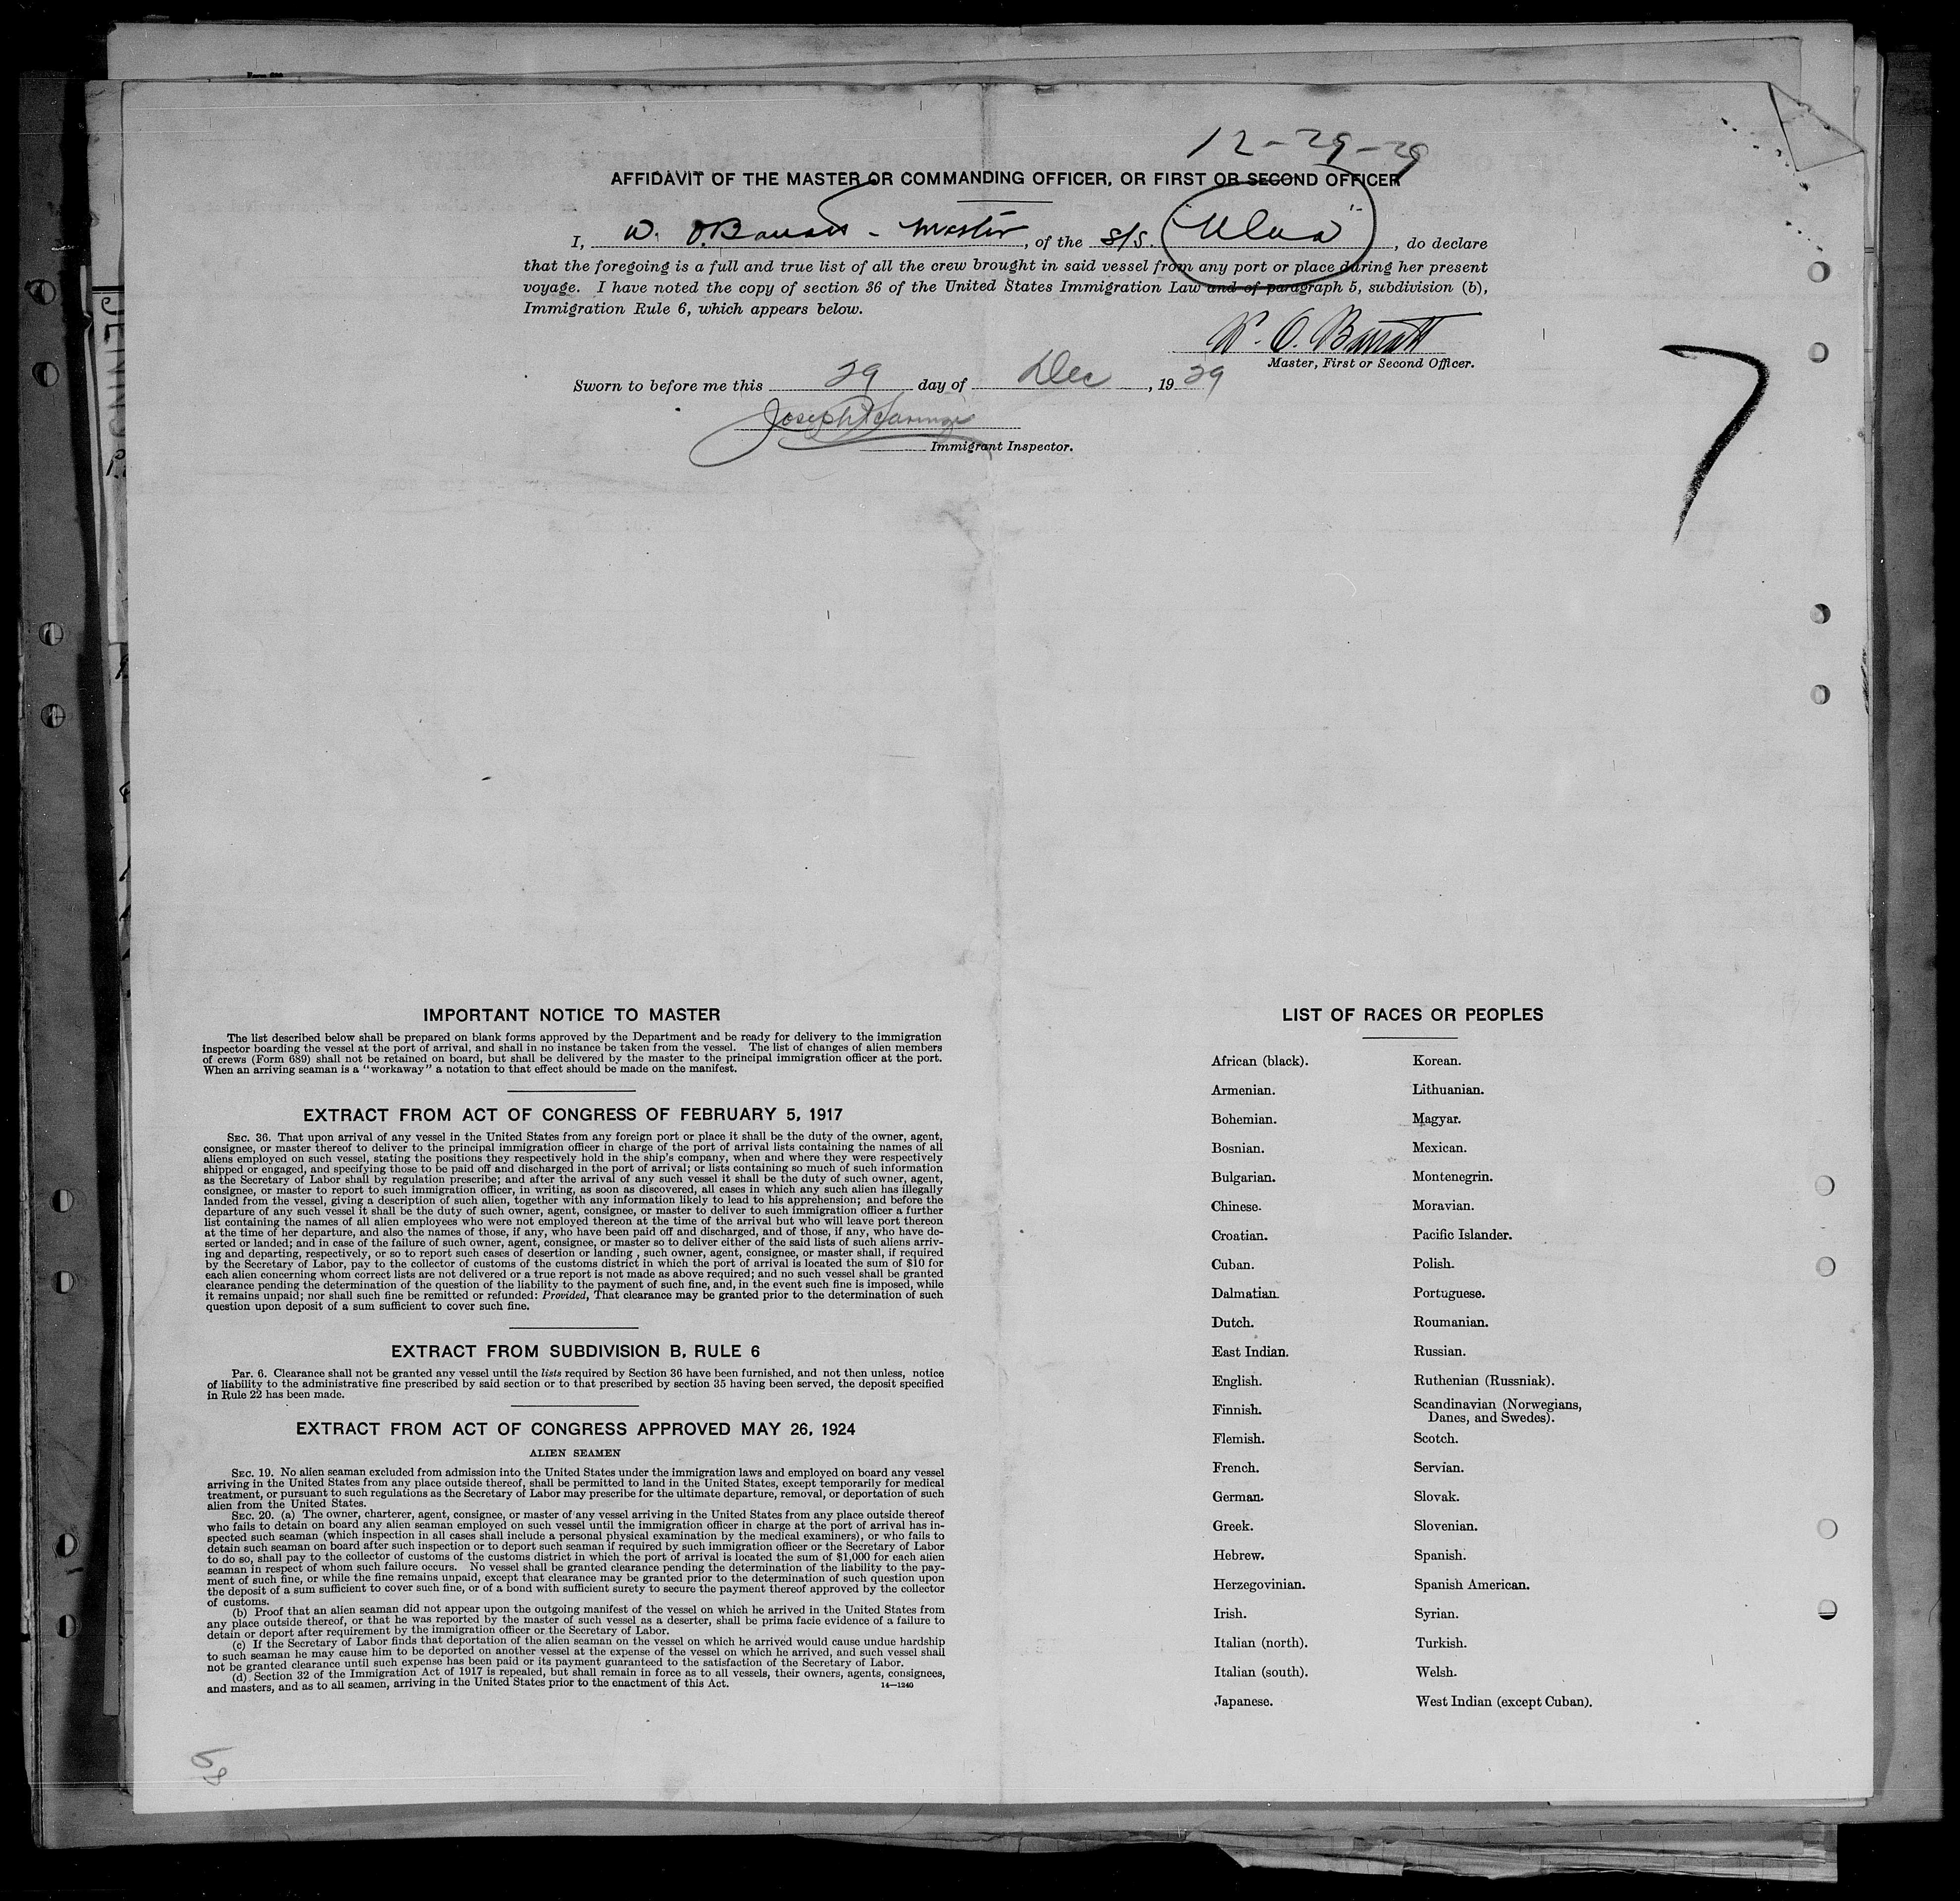 12-29-29
AFFIDAVIT OF THE MASTER OR COMMANDING OFFICER, OR FIRST OR SECOND OFFICER
I, W. O. Barratt - Master, of the S/S. "Ulua", do declare
that the foregoing is a full and true list of all the crew brought in said vessel from any port or place during her present
voyage. I have noted the copy of section 36 of the United States Immigration Law and of paragraph 5, subdivision (b),
Immigration Rule 6, which appears below.
W. O. Barratt
Master, First or Second Officer.
7
Sworn to before me this 29 day of Dec, 1929
Joseph
Immigrant Inspector.
IMPORTANT NOTICE TO MASTER
The list described below shall be prepared on blank forms approved by the Department and be ready for delivery to the immigration
inspector boarding the vessel at the port of arrival, and shall in no instance be taken from the vessel. The list of changes of alien members
of crews (Form 689) shall not be retained on board, but shall be delivered by the master to the principal immigration officer at the port.
When an arriving seaman is a "workaway" a notation to that effect should be made on the manifest.
EXTRACT FROM ACT OF CONGRESS OF FEBRUARY 5, 1917
SEC. 36. That upon arrival of any vessel in the United States from any foreign port or place it shall be the duty of the owner, agent,
consignee, or master thereof to deliver to the principal immigration officer in charge of the port of arrival lists containing the names of all
aliens employed on such vessel, stating the positions they respectively hold in the ship's company, when and where they were respectively
shipped or engaged, and specifying those to be paid off and discharged in the port of arrival; or lists containing so much of such information
as the Secretary of Labor shall by regulation prescribe; and after the arrival of any such vessel it shall be the duty of such owner, agent,
consignee, or master to report to such immigration officer, in writing, as soon as discovered, all cases in which any such alien has illegally
landed from the vessel, giving a description of such alien, together with any information likely to lead to his apprehension; and before the
departure of any such vessel it shall be the duty of such owner, agent, consignee, or master to deliver to such immigration officer a further
list containing the names of all alien employees who were not employed thereon at the time of the arrival but who will leave port thereon
at the time of her departure, and also the names of those, if any, who have been paid off and discharged, and of those, if any, who have de-
serted or landed; and in case of the failure of such owner, agent, consignee, or master so to deliver either of the said lists of such aliens arriv-
ing and departing, respectively, or so to report such cases of desertion or landing , such owner, agent, consignee, or master shall, if required
by the Secretary of Labor, pay to the collector of customs of the customs district in which the port of arrival is located the sum of $10 for
each alien concerning whom correct lists are not delivered or a true report is not made as above required; and no such vessel shall be granted
clearance pending the determination of the question of the liability to the payment of such fine, and, in the event such fine is imposed, while
it remains unpaid; nor shall such fine be remitted or refunded: Provided, That clearance may be granted prior to the determination of such
question upon deposit of a sum sufficient to cover such fine.
EXTRACT FROM SUBDIVISION B, RULE 6
PAR. 6. Clearance shall not be granted any vessel until the lists required by Section 36 have been furnished, and not then unless, notice
of liability to the administrative fine prescribed by said section or to that prescribed by section 35 having been served, the deposit specified
in Rule 22 has been made.
EXTRACT FROM ACT OF CONGRESS APPROVED MAY 26, 1924
ALIEN SEAMEN
SEC. 19. No alien seaman excluded from admission into the United States under the immigration laws and employed on board any vessel
arriving in the United States from any place outside thereof, shall be permitted to land in the United States, except temporarily for medical
treatment, or pursuant to such regulations as the Secretary of Labor may prescribe for the ultimate departure, removal, or deportation of such
alien from the United States.
SEC. 20. (a) The owner, charterer, agent, consignee, or master of any vessel arriving in the United States from any place outside thereof
who fails to detain on board any alien seaman employed on such vessel until the immigration officer in charge at the port of arrival has in-
spected such seaman (which inspection in all cases shall include a personal physical examination by the medical examiners), or who fails to
detain such seaman on board after such inspection or to deport such seaman if required by such immigration officer or the Secretary of Labor
to do so, shall pay to the collector of customs of the customs district in which the port of arrival is located the sum of $1,000 for each alien
seaman in respect of whom such failure occurs. No vessel shall be granted clearance pending the determination of the liability to the pay-
ment of such fine, or while the fine remains unpaid, except that clearance may be granted prior to the determination of such question upon
the deposit of a sum sufficient to cover such fine, or of a bond with sufficient surety to secure the payment thereof approved by the collector
of customs.
(b) Proof that an alien seaman did not appear upon the outgoing manifest of the vessel on which he arrived in the United States from
any place outside thereof, or that he was reported by the master of such vessel as a deserter, shall be prima facie evidence of a failure to
detain or deport after requirement by the immigration officer or the Secretary of Labor.
(c) If the Secretary of Labor finds that deportation of the alien seaman on the vessel on which he arrived would cause undue hardship
to such seaman he may cause him to be deported on another vessel at the expense of the vessel on which he arrived, and such vessel shall
not be granted clearance until such expense has been paid or its payment guaranteed to the satisfaction of the Secretary of Labor.
(d) Section 32 of the Immigration Act of 1917 is repealed, but shall remain in force as to all vessels, their owners, agents, consignees,
and masters, and as to all seamen, arriving in the United States prior to the enactment of this Act.
14—1240
LIST OF RACES OR PEOPLES
African (black).
Armenian.
Bohemian.
Bosnian.
Bulgarian.
Chinese.
Croatian.
Cuban.
Dalmatian.
Dutch.
East Indian.
English.
Finnish.
Flemish.
French.
German.
Greek.
Hebrew.
Herzegovinian.
Irish.
Italian (north).
Italian (south).
Japanese.
Korean.
Lithuanian.
Magyar.
Mexican.
Montenegrin.
Moravian.
Pacific Islander.
Polish.
Portuguese.
Roumanian.
Russian.
Ruthenian (Russniak).
Scandinavian (Norwegians,
Danes, and Swedes).
Scotch.
Servian.
Slovak.
Slovenian.
Spanish.
Spanish American.
Syrian.
Turkish.
Welsh.
West Indian (except Cuban).